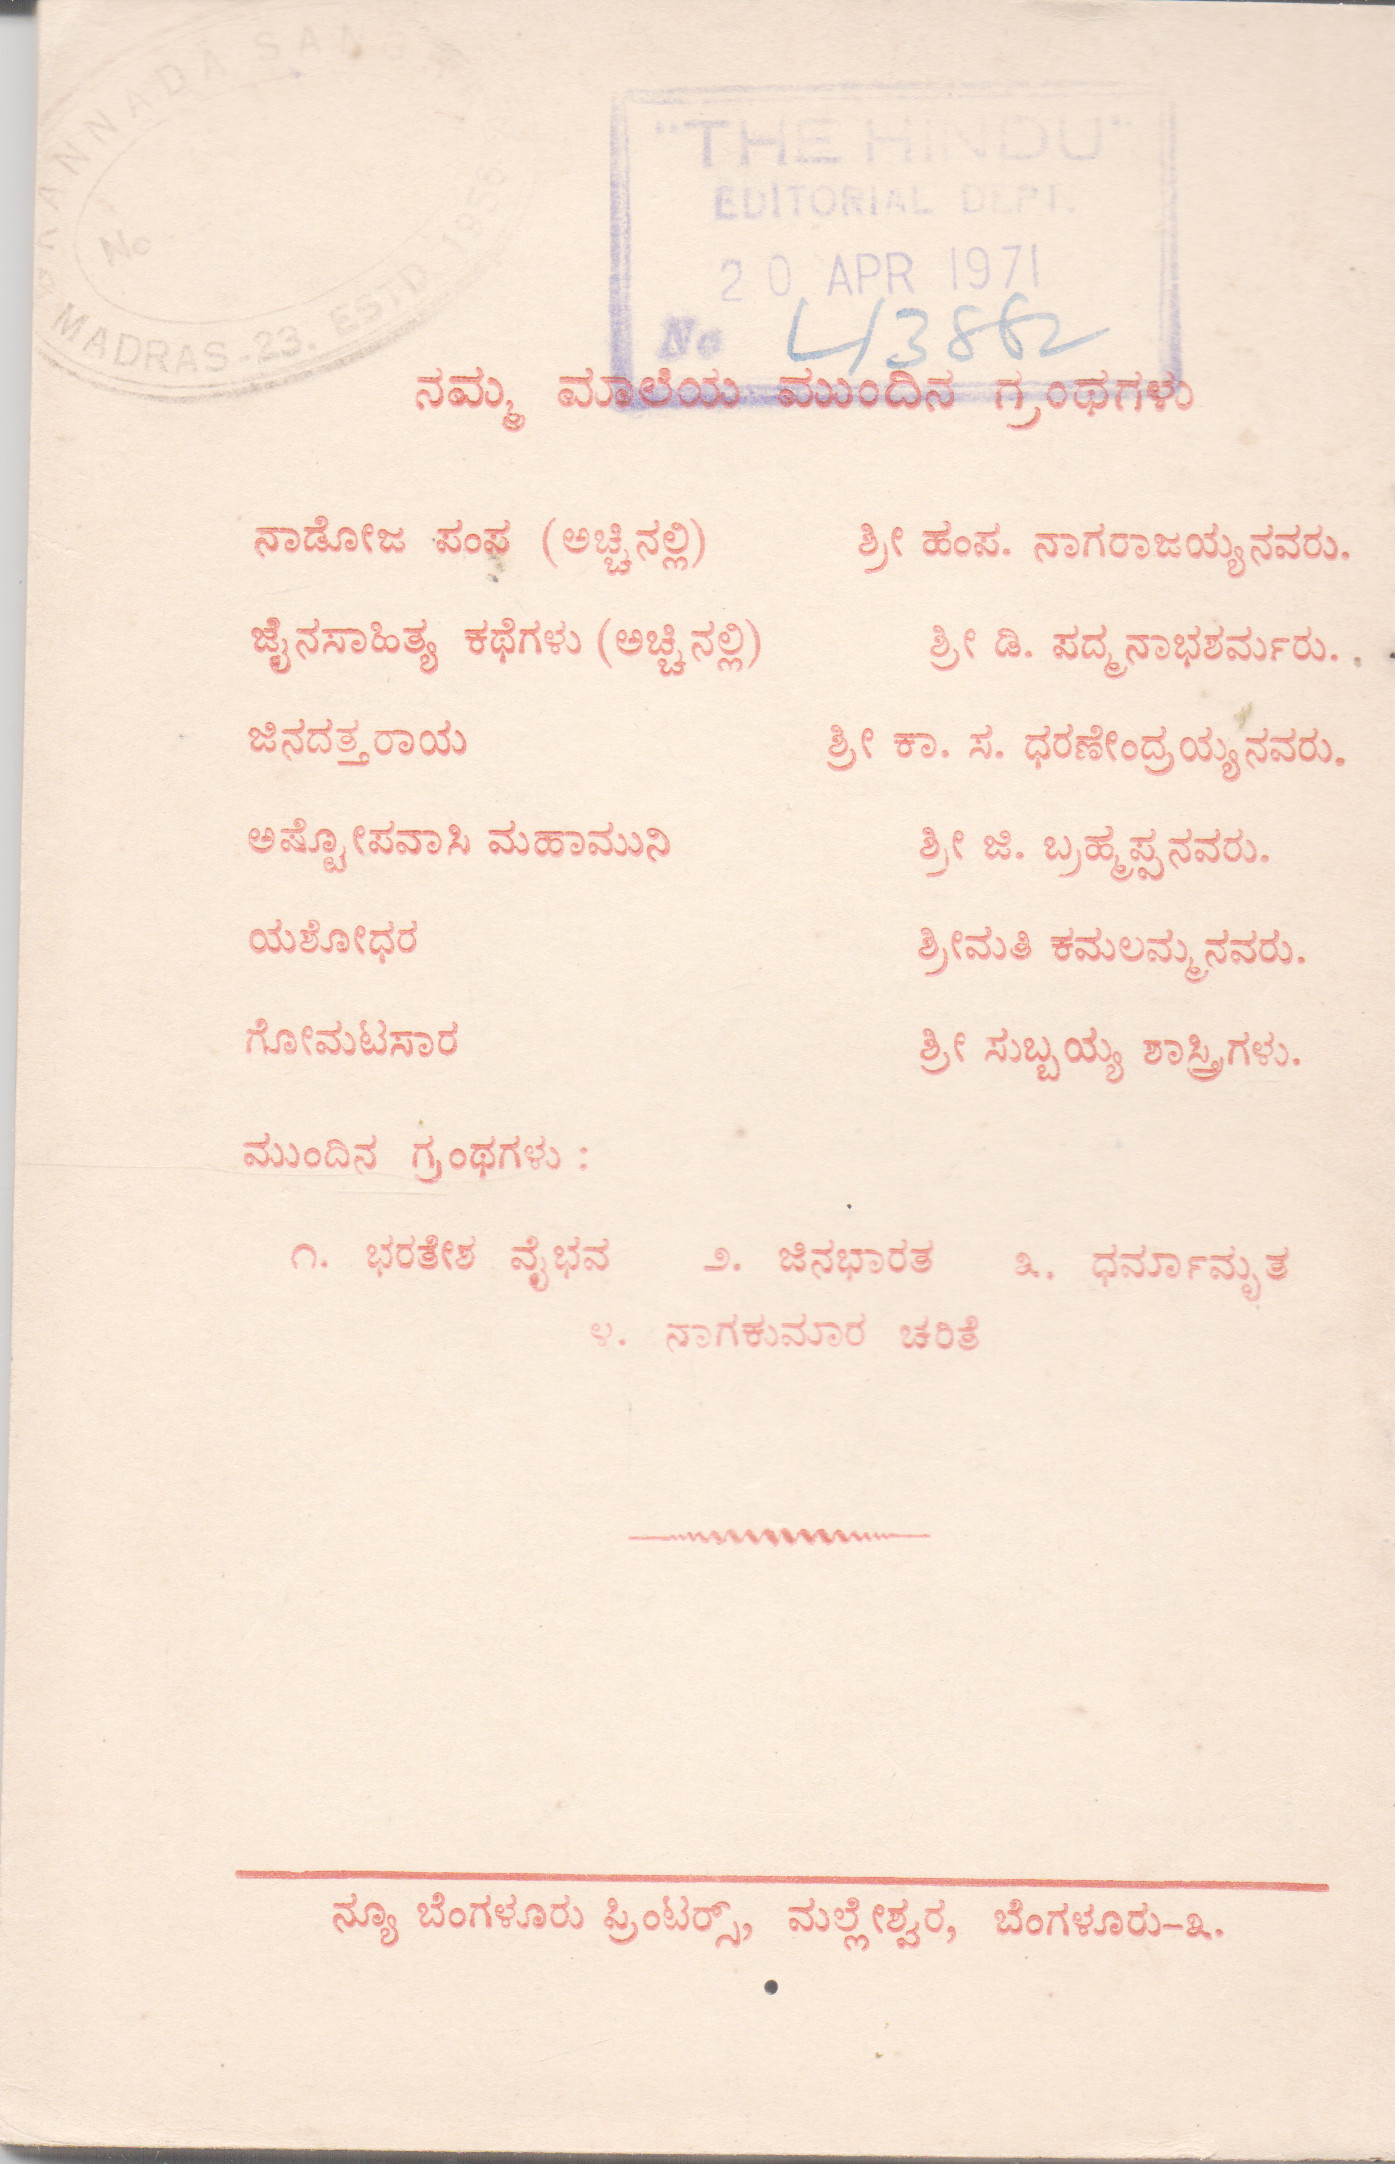 KANNADA SANG
No
MADRAS-23. ESTD. 1956
"THE HINDU"
EDITORIAL DEPT.
20 APR 1971
No 43862
ನಮ್ಮ ಮಾಲೆಯ ಮುಂದಿನ ಗ್ರಂಥಗಳು
ನಾಡೋಜ ಪಂಪ (ಅಚ್ಚಿನಲ್ಲಿ) ಶ್ರೀ ಹಂಪ. ನಾಗರಾಜಯ್ಯನವರು.
ಜೈನಸಾಹಿತ್ಯ ಕಥೆಗಳು (ಅಚ್ಚಿನಲ್ಲಿ) ಶ್ರೀ ಡಿ. ಪದ್ಮನಾಭಶರ್ಮರು.
ಜಿನದತ್ತರಾಯ ಶ್ರೀ ಕಾ. ಸ. ಧರಣೇಂದ್ರಯ್ಯನವರು.
ಅಷ್ಟೋಪವಾಸಿ ಮಹಾಮುನಿ ಶ್ರೀ ಜಿ. ಬ್ರಹ್ಮಪ್ಪನವರು.
ಯಶೋಧರ ಶ್ರೀಮತಿ ಕಮಲಮ್ಮನವರು.
ಗೋಮಟಸಾರ ಶ್ರೀ ಸುಬ್ಬಯ್ಯ ಶಾಸ್ತ್ರಿಗಳು.
ಮುಂದಿನ ಗ್ರಂಥಗಳು :
೧. ಭರತೇಶ ವೈಭವ ೨. ಜಿನಭಾರತ ೩. ಧರ್ಮಾಮೃತ
೪. ನಾಗಕುಮಾರ ಚರಿತೆ
ನ್ಯೂ ಬೆಂಗಳೂರು ಪ್ರಿಂಟರ್ಸ್, ಮಲ್ಲೇಶ್ವರ, ಬೆಂಗಳೂರು-೩.